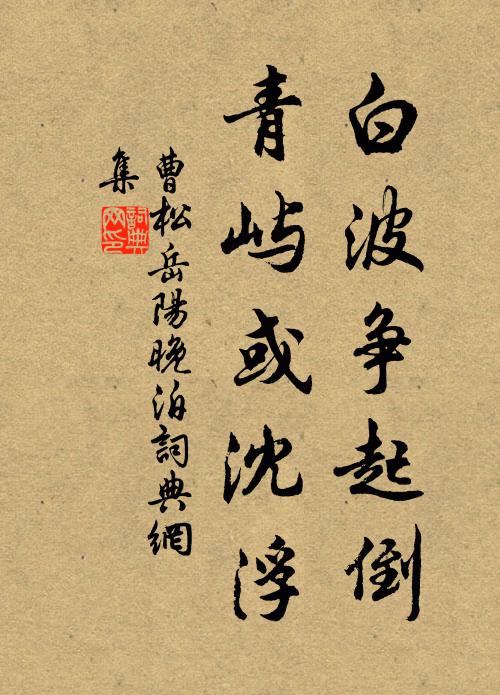 白波争起倒
青屿或沈浮
曹松岳陽晚泊詞典網
集
詞典
网印